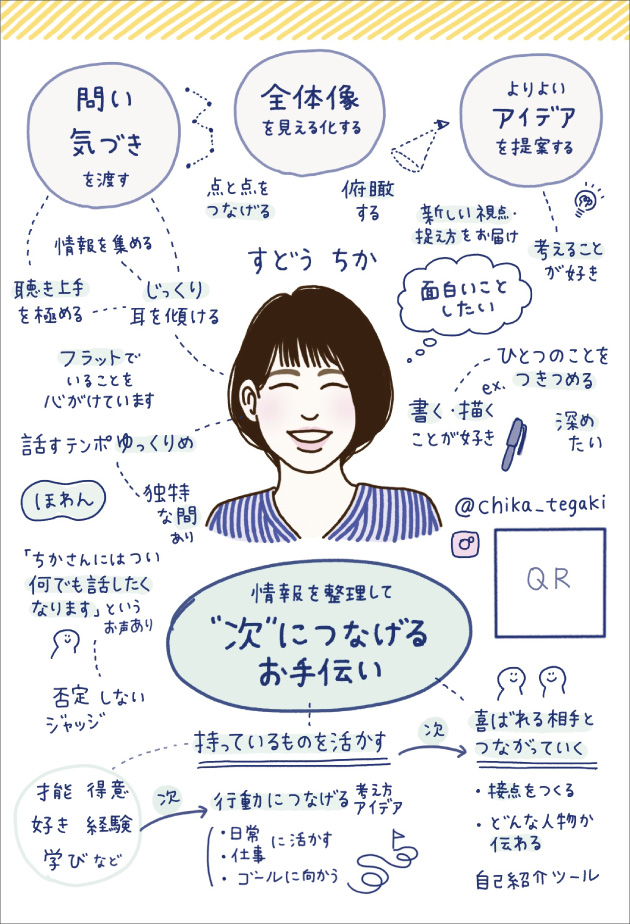 問い
気づき
を渡す
全体像
を見える化する
よりよい
アイデア
を提案する
点と点を
つなげる
俯瞰
する
新しい視点・
捉え方をお届け
考えること
が好き
情報を集める
聴き上手
を極める
じっくり
耳を傾ける
すどう ちか
面白いこと
したい
フラットで
いることを
心がけています
ひとつのことを
つきつめる
ex.
書く・描く
ことが好き
深め
たい
話すテンポゆっくりめ
ほわん
独特
な間
あり
@chika_tegaki
QR
「ちかさんにはつい
何でも話したく
なります」という
お声あり
否定 しない
ジャッジ
情報を整理して
"次"につなげる
お手伝い
持っているものを活かす
次
喜ばれる相手と
つながっていく
・接点をつくる
・どんな人物か
伝わる
自己紹介ツール
才能 得意
好き 経験
学びなど
次
行動につなげる 考え方
アイデア
・日常
・仕事
に活かす
・ゴールに向かう